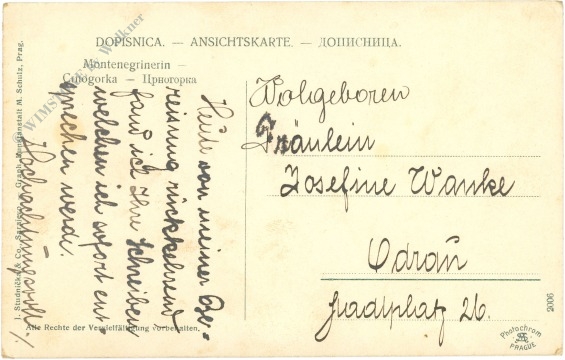 DOPISNICA. — ANSICHTSKARTE. — ДОПИСНИЦА.
Montenegrinerin —
Crnogorka — Црногорка
Wohlgeboren
Fräulein
Josefine Wanke
Odrau
Stadtplatz 26.
Heute von meiner Ge-
reisung rückkehrend
fand ich Ihr Schreiben
welchem ich sofort ent-
sprechen werde.
Hochachtungsvoll
I. Studnička & Co., Sarajevo. — Graph. Kunstanstalt M. Schulz, Prag.
Alle Rechte der Vervielfältigung vorbehalten.
2006
Photochrom
PRAGUE